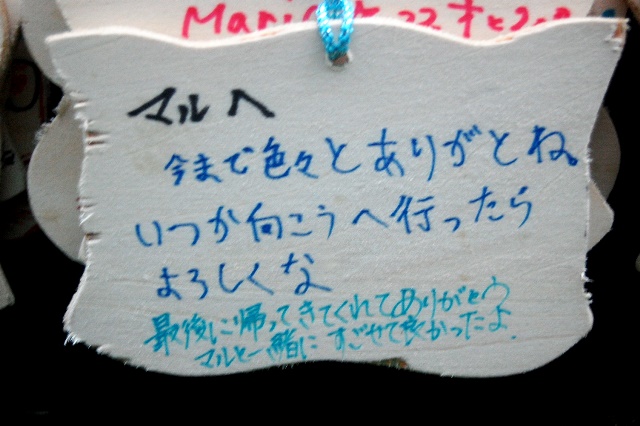 マルへ
今まで色々とありがとね。
いつか向こうへ行ったら
よろしくな
最後に帰ってきてくれてありがとう
マルと一緒にすごせて良かったよ.